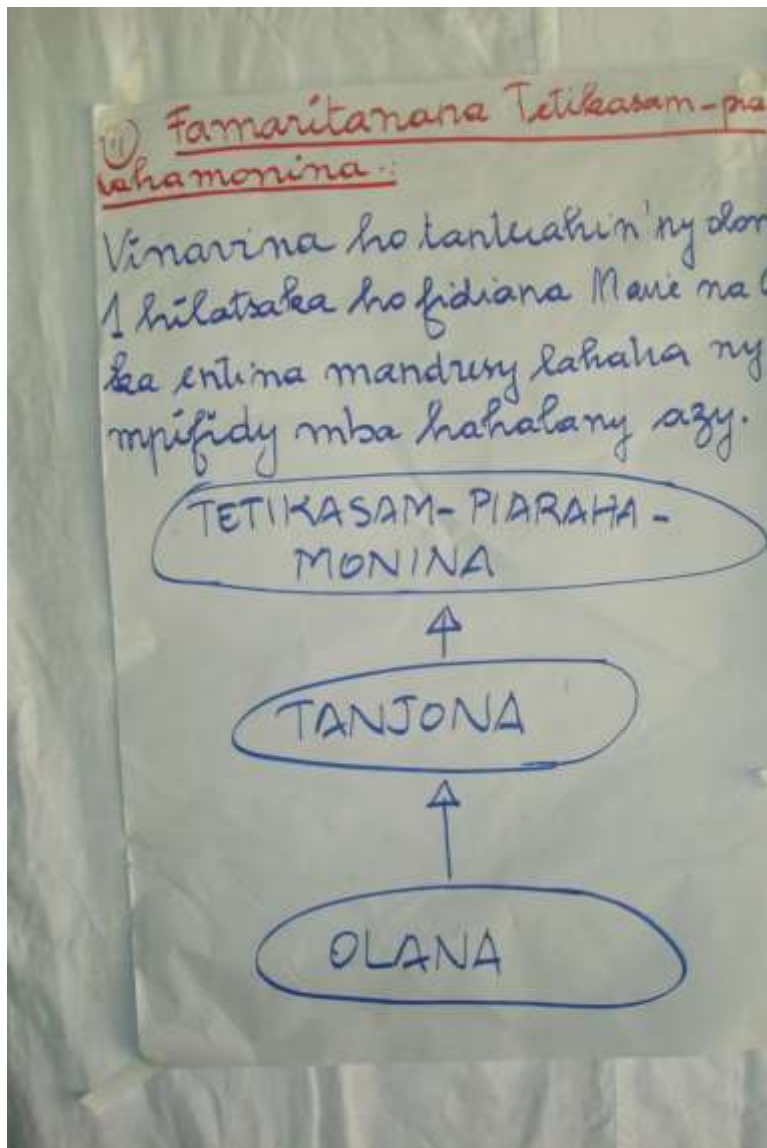 Famaritanana Tetikasam-pia
rahamonina:
Vinavina ho tanterahin'ny olon
1 hilatsaka ho fidiana Maire na
ka entina mandresy lahatra ny
mpifidy mba hahalany azy.
TETIKASAM-PIARAHA-
MONINA
TANJONA
OLANA